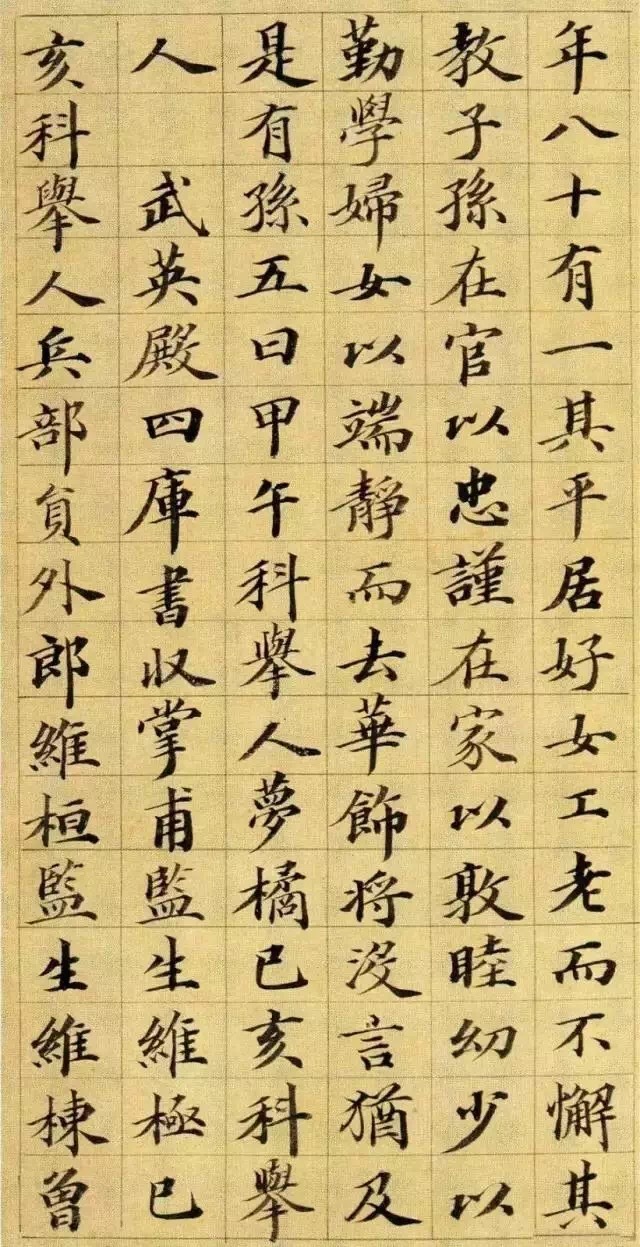 年八十有一其平居好女工老而不懈其
教子孫在官以忠謹在家以敦睦幼少以
勤學婦女以端靜而去華飾将没言猶及
是有孫五曰甲午科舉人夢橘已亥科舉
人武英殿四庫書收掌甫監生維極已
亥科舉人兵部負外郎維桓監生維棟曾